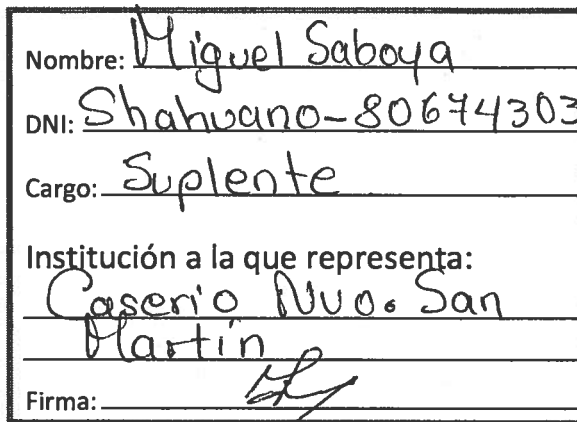 Nombre: Miguel Saboya
DNI: Shahuano-80674303
Cargo: Suplente
Institución a la que representa:
Caserio Nvo. San
Martín
Firma: